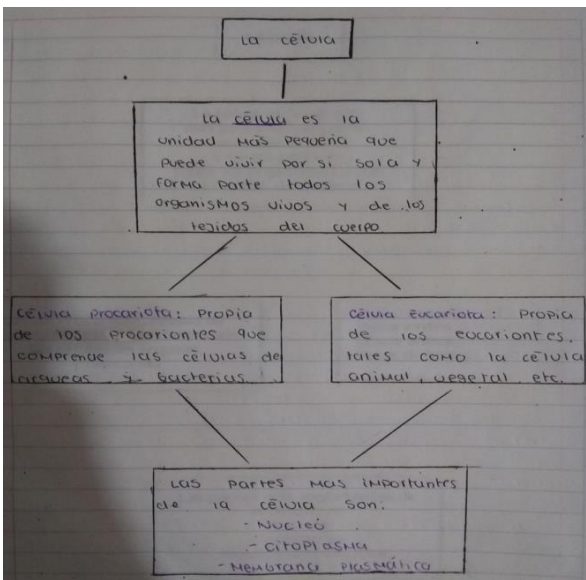 La célula
La célula es la
unidad más pequeña que
puede vivir por si sola y
forma parte todos los
organismos vivos y de los
tejidos del cuerpo
Célula procariota: Propia
de los procariontes que
comprende las células de
arqueas y bacterias.
Célula eucariota: Propia
de los eucariontes,
tales como la célula
animal, vegetal, etc.
Las partes mas importantes
de la célula son:
- Nucleó
- citoplasma
- Membrana plasmática